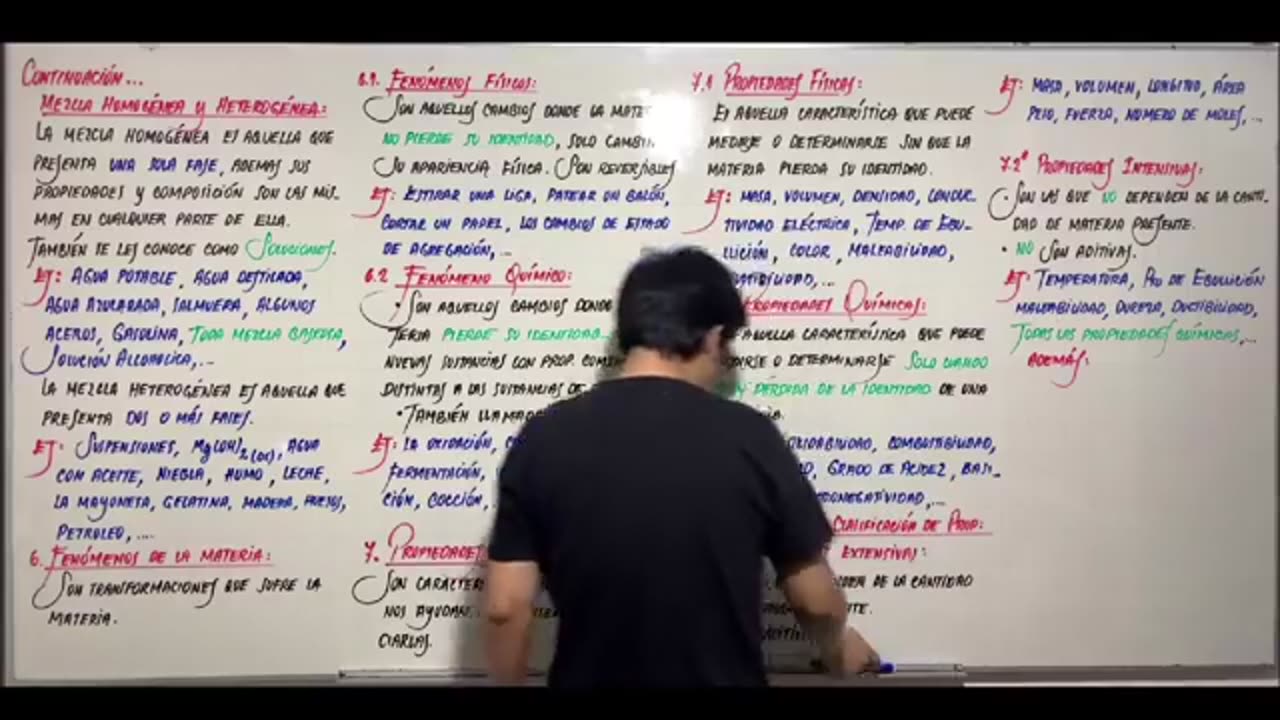 CONTINUACIÓN...
MEZCLA HOMOGÉNEA Y HETEROGÉNEA:
LA MEZCLA HOMOGÉNEA ES AQUELLA QUE
PRESENTA UNA SOLA FASE, ADEMAS SUS
PROPIEDADES Y COMPOSICIÓN SON LAS MIS-
MAS EN CUALQUIER PARTE DE ELLA.
TAMBIÉN SE LES CONOCE COMO SOLUCIONES.
EJ: AGUA POTABLE, AGUA DESTILADA,
AGUA AZUCARADA, SALMUERA, ALGUNOS
ACEROS, GASOLINA, TODA MEZCLA GASEOSA,
SOLUCIÓN ALCOHOLICA,...
LA MEZCLA HETEROGÉNEA ES AQUELLA QUE
PRESENTA DOS O MÁS FASES.
EJ: SUSPENSIONES, Mg(OH)2(ac), AGUA
CON ACEITE, NIEBLA, HUMO, LECHE,
LA MAYONESA, GELATINA, MADERA, HUESOS,
PETROLEO, ....
6. FENÓMENOS DE LA MATERIA:
SON TRANSFORMACIONES QUE SUFRE LA
MATERIA.
6.1. FENÓMENOS FÍSICOS:
SON AQUELLOS CAMBIOS DONDE LA MATE
NO PIERDE SU IDENTIDAD, SOLO CAMBIA
SU APARIENCIA FÍSICA. SON REVERSIBLES
EJ: ESTIRAR UNA LIGA, PATEAR UN BALÓN,
CORTAR UN PAPEL, LOS CAMBIOS DE ESTADO
DE AGREGACIÓN,...
6.2 FENÓMENO QUÍMICO:
• SON AQUELLOS CAMBIOS DONDE
TERIA PIERDE SU IDENTIDAD...
NUEVAS SUSTANCIAS CON PROP.
DISTINTAS A LAS SUSTANCIAS DE
• TAMBIÉN LLAMA
EJ: LA OXIDACIÓN,
FERMENTACIÓN,
CIÓN, COCCIÓN,
7. PROPIEDADES
SON CARACTE
NOS AYUDAN
CIARLAS.
7.1 PROPIEDADES FÍSICAS:
ES AQUELLA CARACTERÍSTICA QUE PUEDE
MEDIRSE O DETERMINARSE SIN QUE LA
MATERIA PIERDA SU IDENTIDAD.
EJ: MASA, VOLUMEN, DENSIDAD, CONDUC-
TIVIDAD ELÉCTRICA, TEMP. DE EBU-
LLICIÓN, COLOR, MALEABILIDAD,
TIBILIDAD,...
PROPIEDADES QUÍMICAS:
AQUELLA CARACTERÍSTICA QUE PUEDE
DIRSE O DETERMINARSE SOLO CUANDO
PÉRDIDA DE LA IDENTIDAD DE UNA
OXIDABILIDAD, COMBUSTIBILIDAD,
GRADO DE ACIDEZ, BASI-
RONEGATIVIDAD,...
CLASIFICACIÓN DE PROP:
EXTENSIVAS:
DE LA CANTIDAD
EJ: MASA, VOLUMEN, LONGITUD, ÁREA
PESO, FUERZA, NÚMERO DE MOLES,...
7.2* PROPIEDADES INTENSIVAS:
• SON LAS QUE NO DEPENDEN DE LA CANTI-
DAD DE MATERIA PRESENTE.
• NO SON ADITIVAS.
EJ: TEMPERATURA, PTO DE EBULLICIÓN
MALEABILIDAD, DUREZA, DUCTIBILIDAD,
TODAS LAS PROPIEDADES QUÍMICAS,...
ADEMÁS: